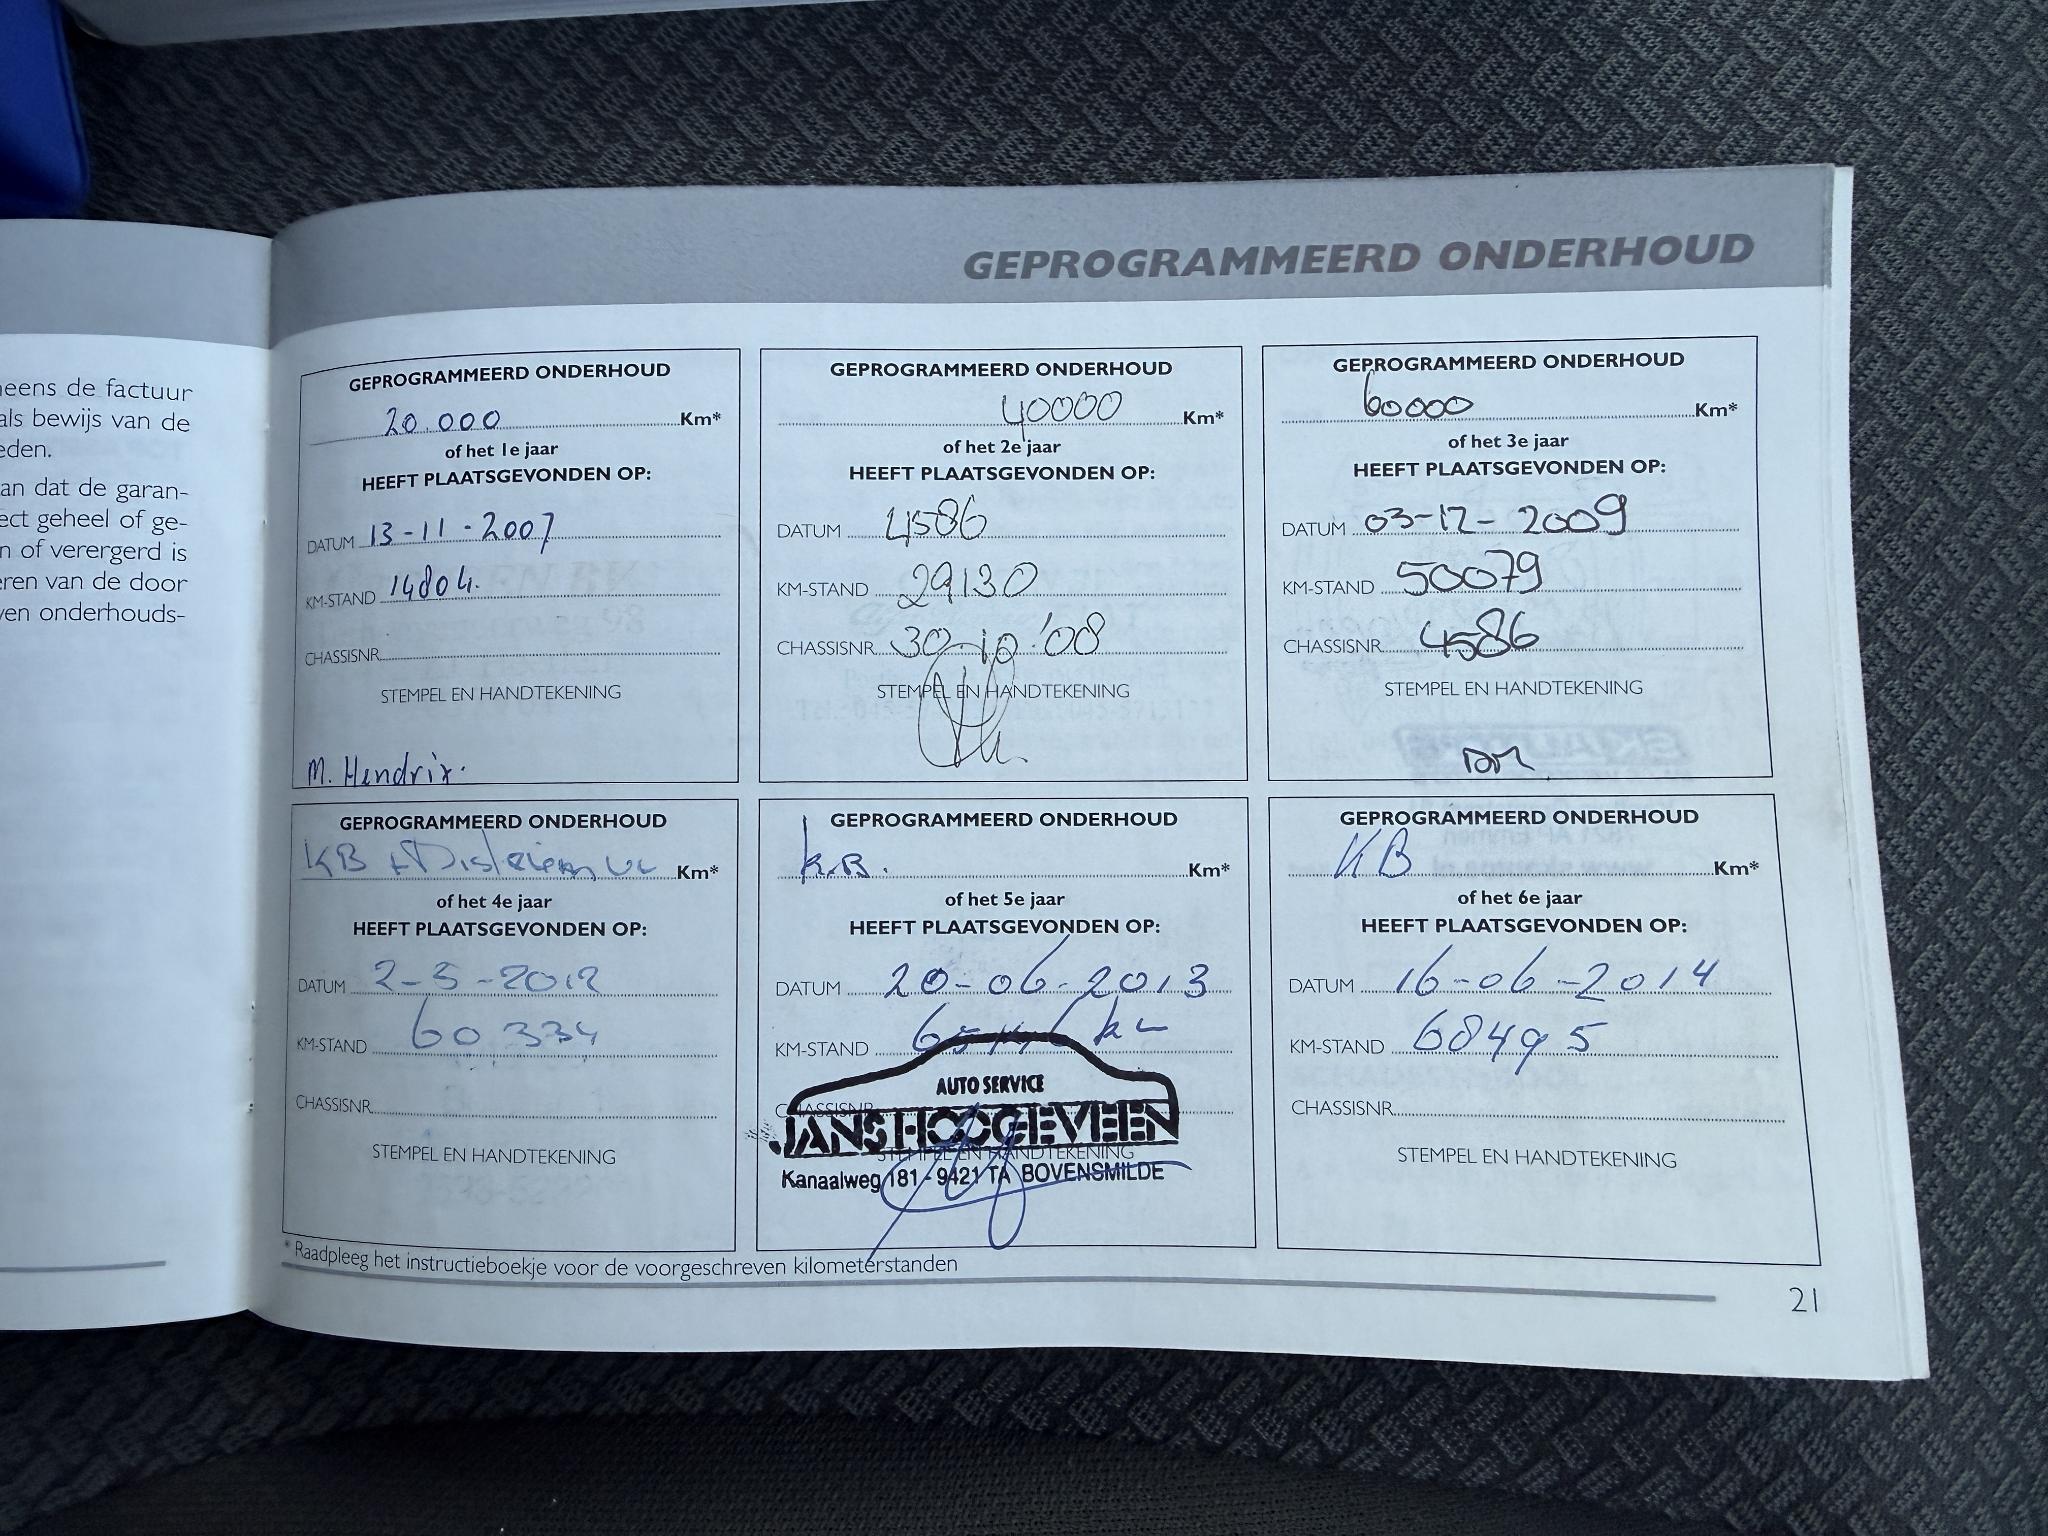 eens de factuur
als bewijs van de
eden.
an dat de garan-
ect geheel of ge-
n of verergerd is
eren van de door
ven onderhouds-
GEPROGRAMMEERD ONDERHOUD
GEPROGRAMMEERD ONDERHOUD
20.000 Km*
of het 1e jaar
HEEFT PLAATSGEVONDEN OP:
DATUM 13-11-2007
KM-STAND 14804.
CHASSISNR.
STEMPEL EN HANDTEKENING
M. Hendrix.
GEPROGRAMMEERD ONDERHOUD
40000 Km*
of het 2e jaar
HEEFT PLAATSGEVONDEN OP:
DATUM 4586
KM-STAND 29130
CHASSISNR. 30-10-'08
STEMPEL EN HANDTEKENING
GEPROGRAMMEERD ONDERHOUD
60000 Km*
of het 3e jaar
HEEFT PLAATSGEVONDEN OP:
DATUM 03-12-2009
KM-STAND 50079
CHASSISNR. 4586
STEMPEL EN HANDTEKENING
GEPROGRAMMEERD ONDERHOUD
KB + Km*
of het 4e jaar
HEEFT PLAATSGEVONDEN OP:
DATUM 2-5-2012
KM-STAND 60334
CHASSISNR.
STEMPEL EN HANDTEKENING
GEPROGRAMMEERD ONDERHOUD
K.B. Km*
of het 5e jaar
HEEFT PLAATSGEVONDEN OP:
DATUM 20-06-2013
KM-STAND
AUTO SERVICE
CHASSISNR.
JANS HOOGEVEEN
STEMPEL EN HANDTEKENING
Kanaalweg 181 - 9421 TA BOVENSMILDE
GEPROGRAMMEERD ONDERHOUD
KB Km*
of het 6e jaar
HEEFT PLAATSGEVONDEN OP:
DATUM 16-06-2014
KM-STAND 68495
CHASSISNR.
STEMPEL EN HANDTEKENING
* Raadpleeg het instructieboekje voor de voorgeschreven kilometerstanden
21